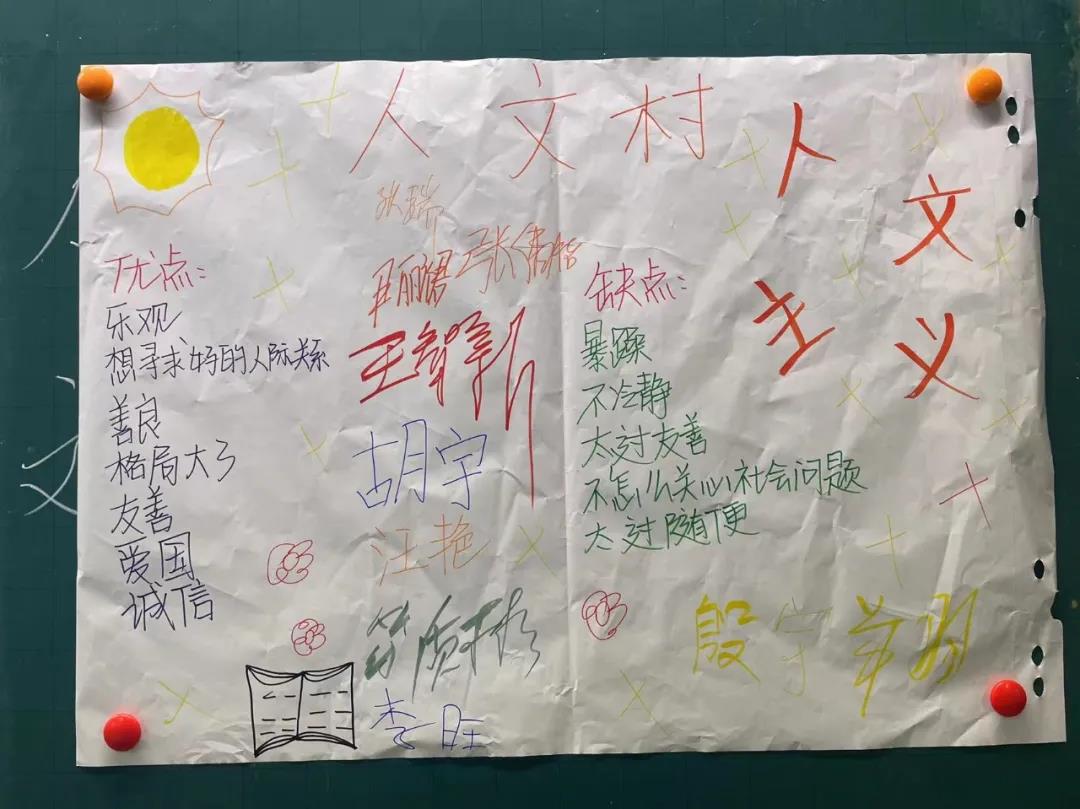 人文村
人文主义
张瑞
优点：
乐观
想寻求好的人际关系
善良
格局大了
友善
爱国
诚信
胡宇
汪艳
李旺
缺点：
暴躁
不冷静
太过友善
不怎么关心社会问题
太过随便
人
文